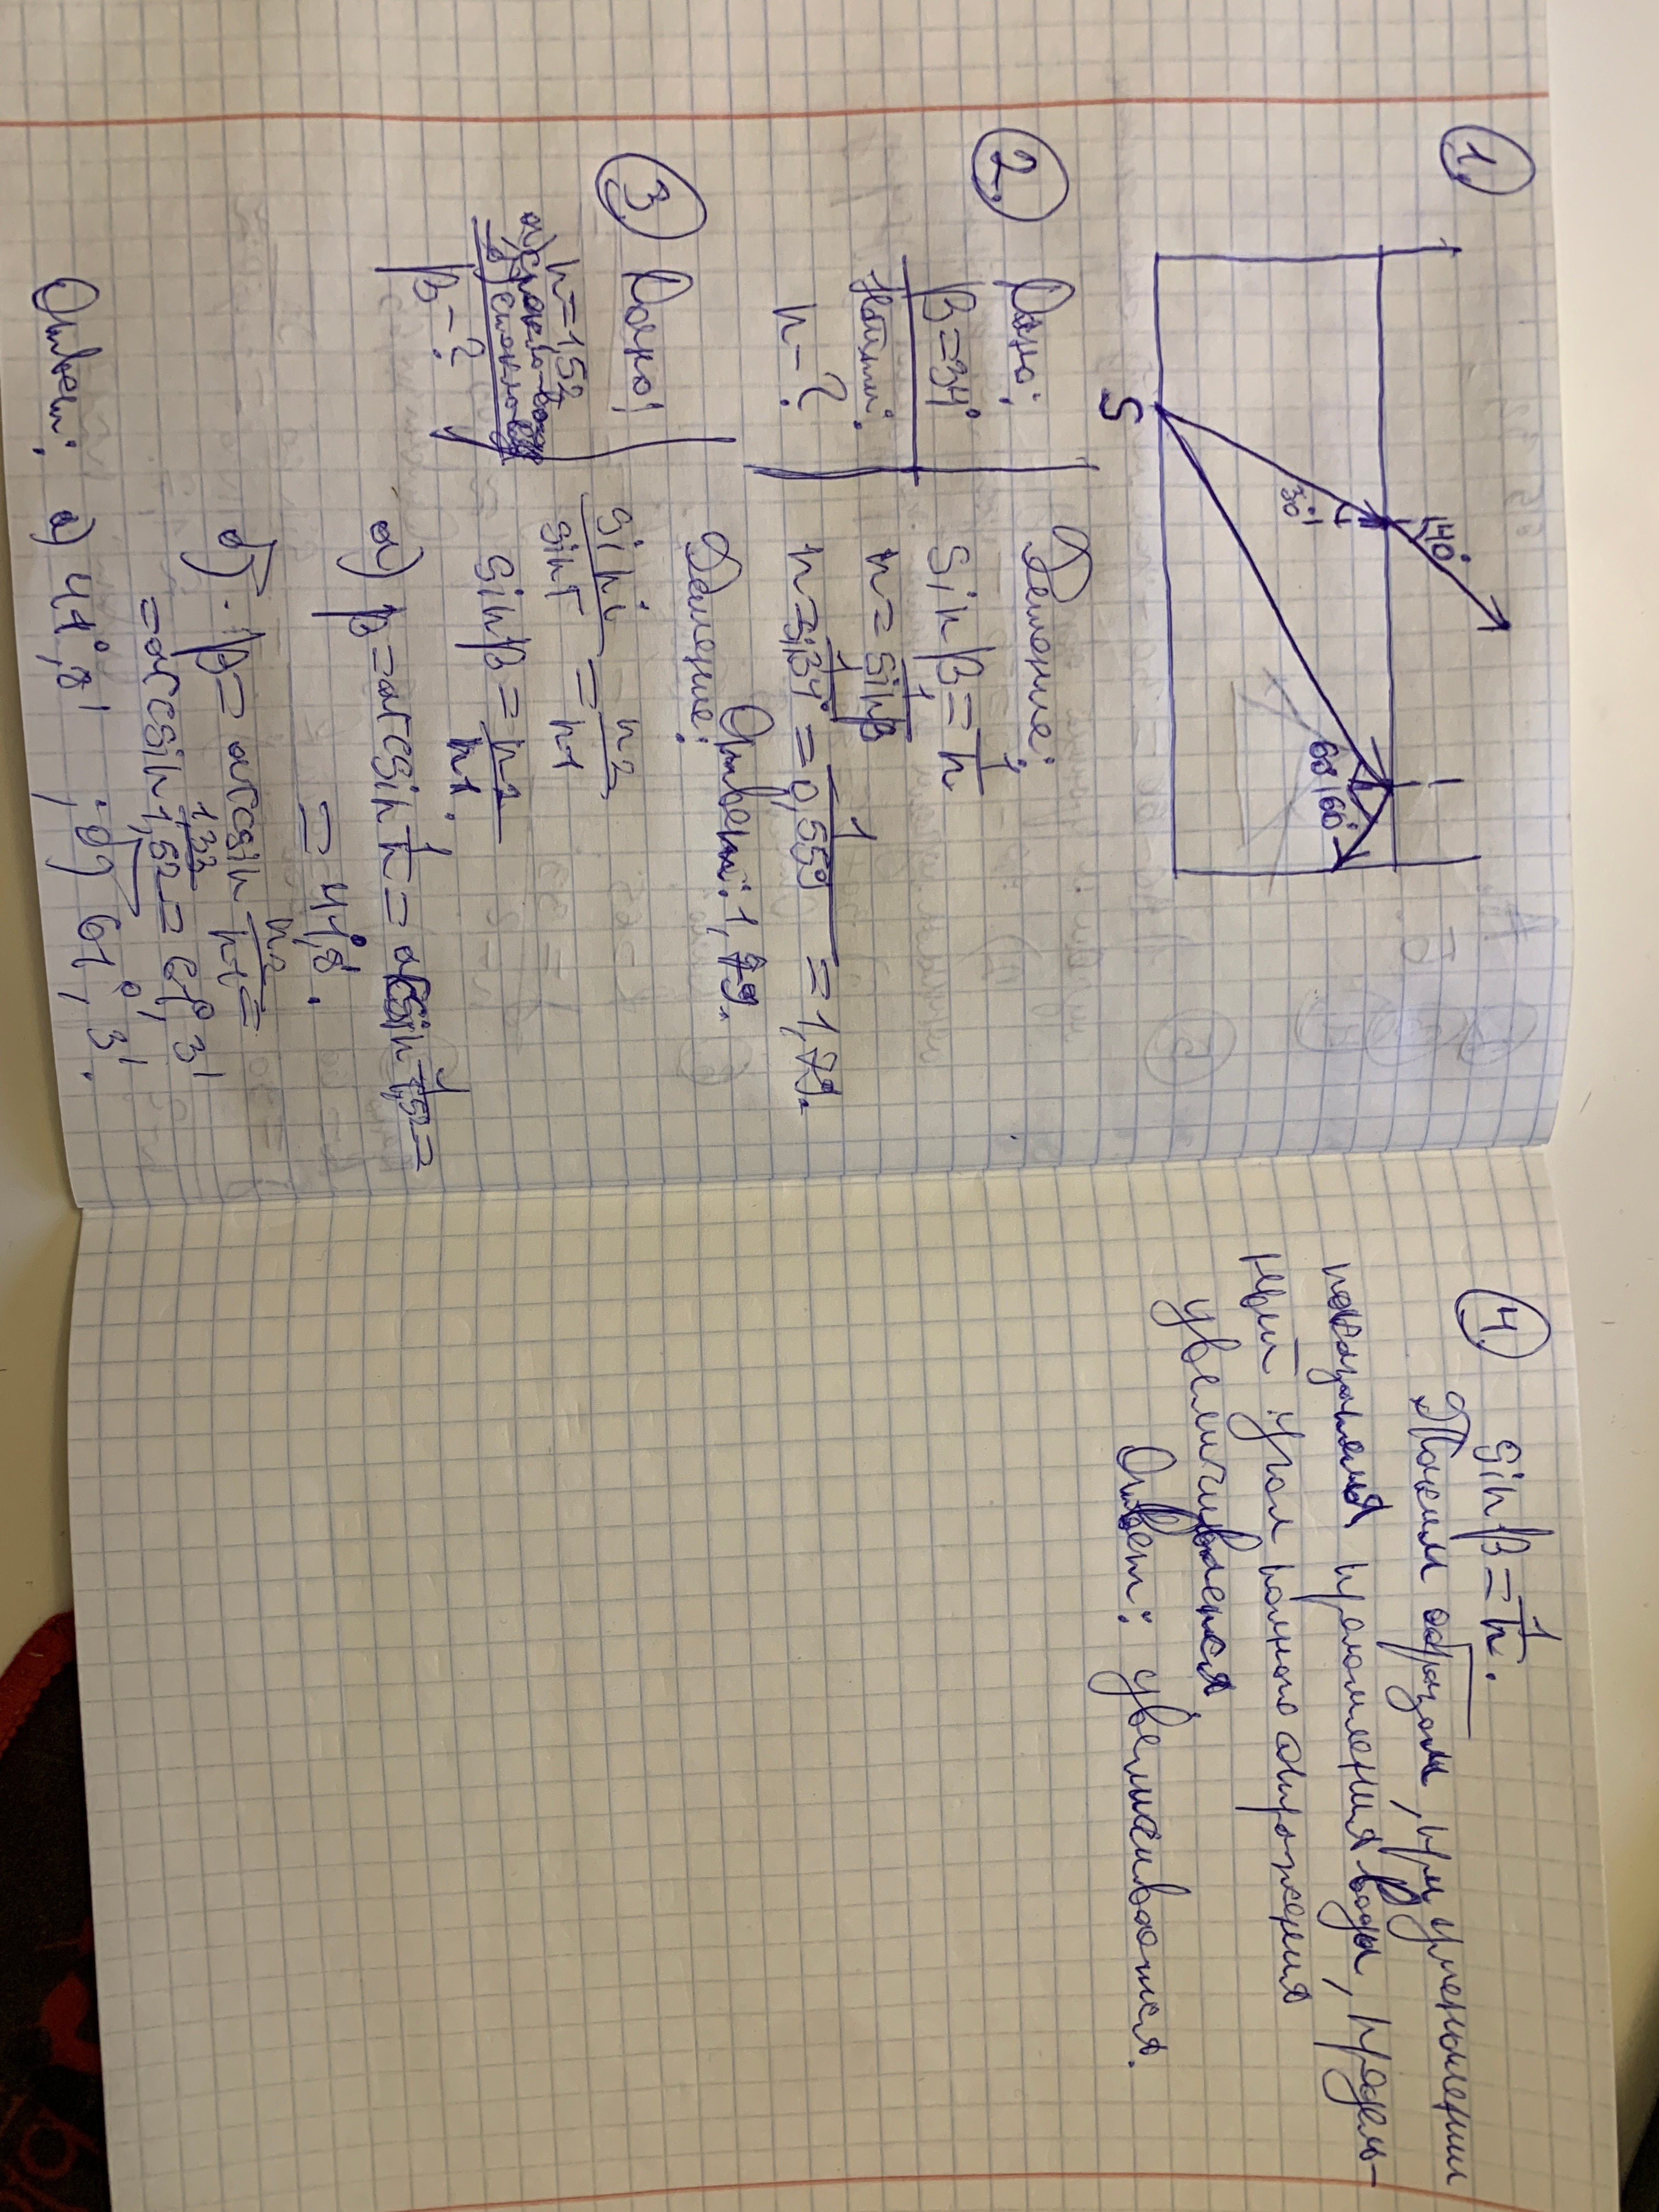 1.
40°
30°
60° 60°
S
2. Дано:
β=34°
Найти:
n-?
Решение:
sin β = 1/n
n = 1/sinβ
n = 1/sin34° = 1/0,559 = 1,79.
Ответ: 1,79.
3. Дано:
n=1,52
а) стекло-возд
б) стекло-
β-?
Решение:
sin i / sin r = n2/n1
sin β = n2/n1.
а) β = arcsin 1/n = arcsin 1/1,52 =
= 41°,8'.
б) β = arcsin n2/n1 =
= arcsin 1,33/1,52 = 61°,3'
Ответ: а) 41°,8' ; б) 61°,3'.
4. sin β = 1/n.
Таким образом, при уменьшении
показателя преломления воды, предель-
ный угол полного отражения
увеличивается.
Ответ: увеличивается.